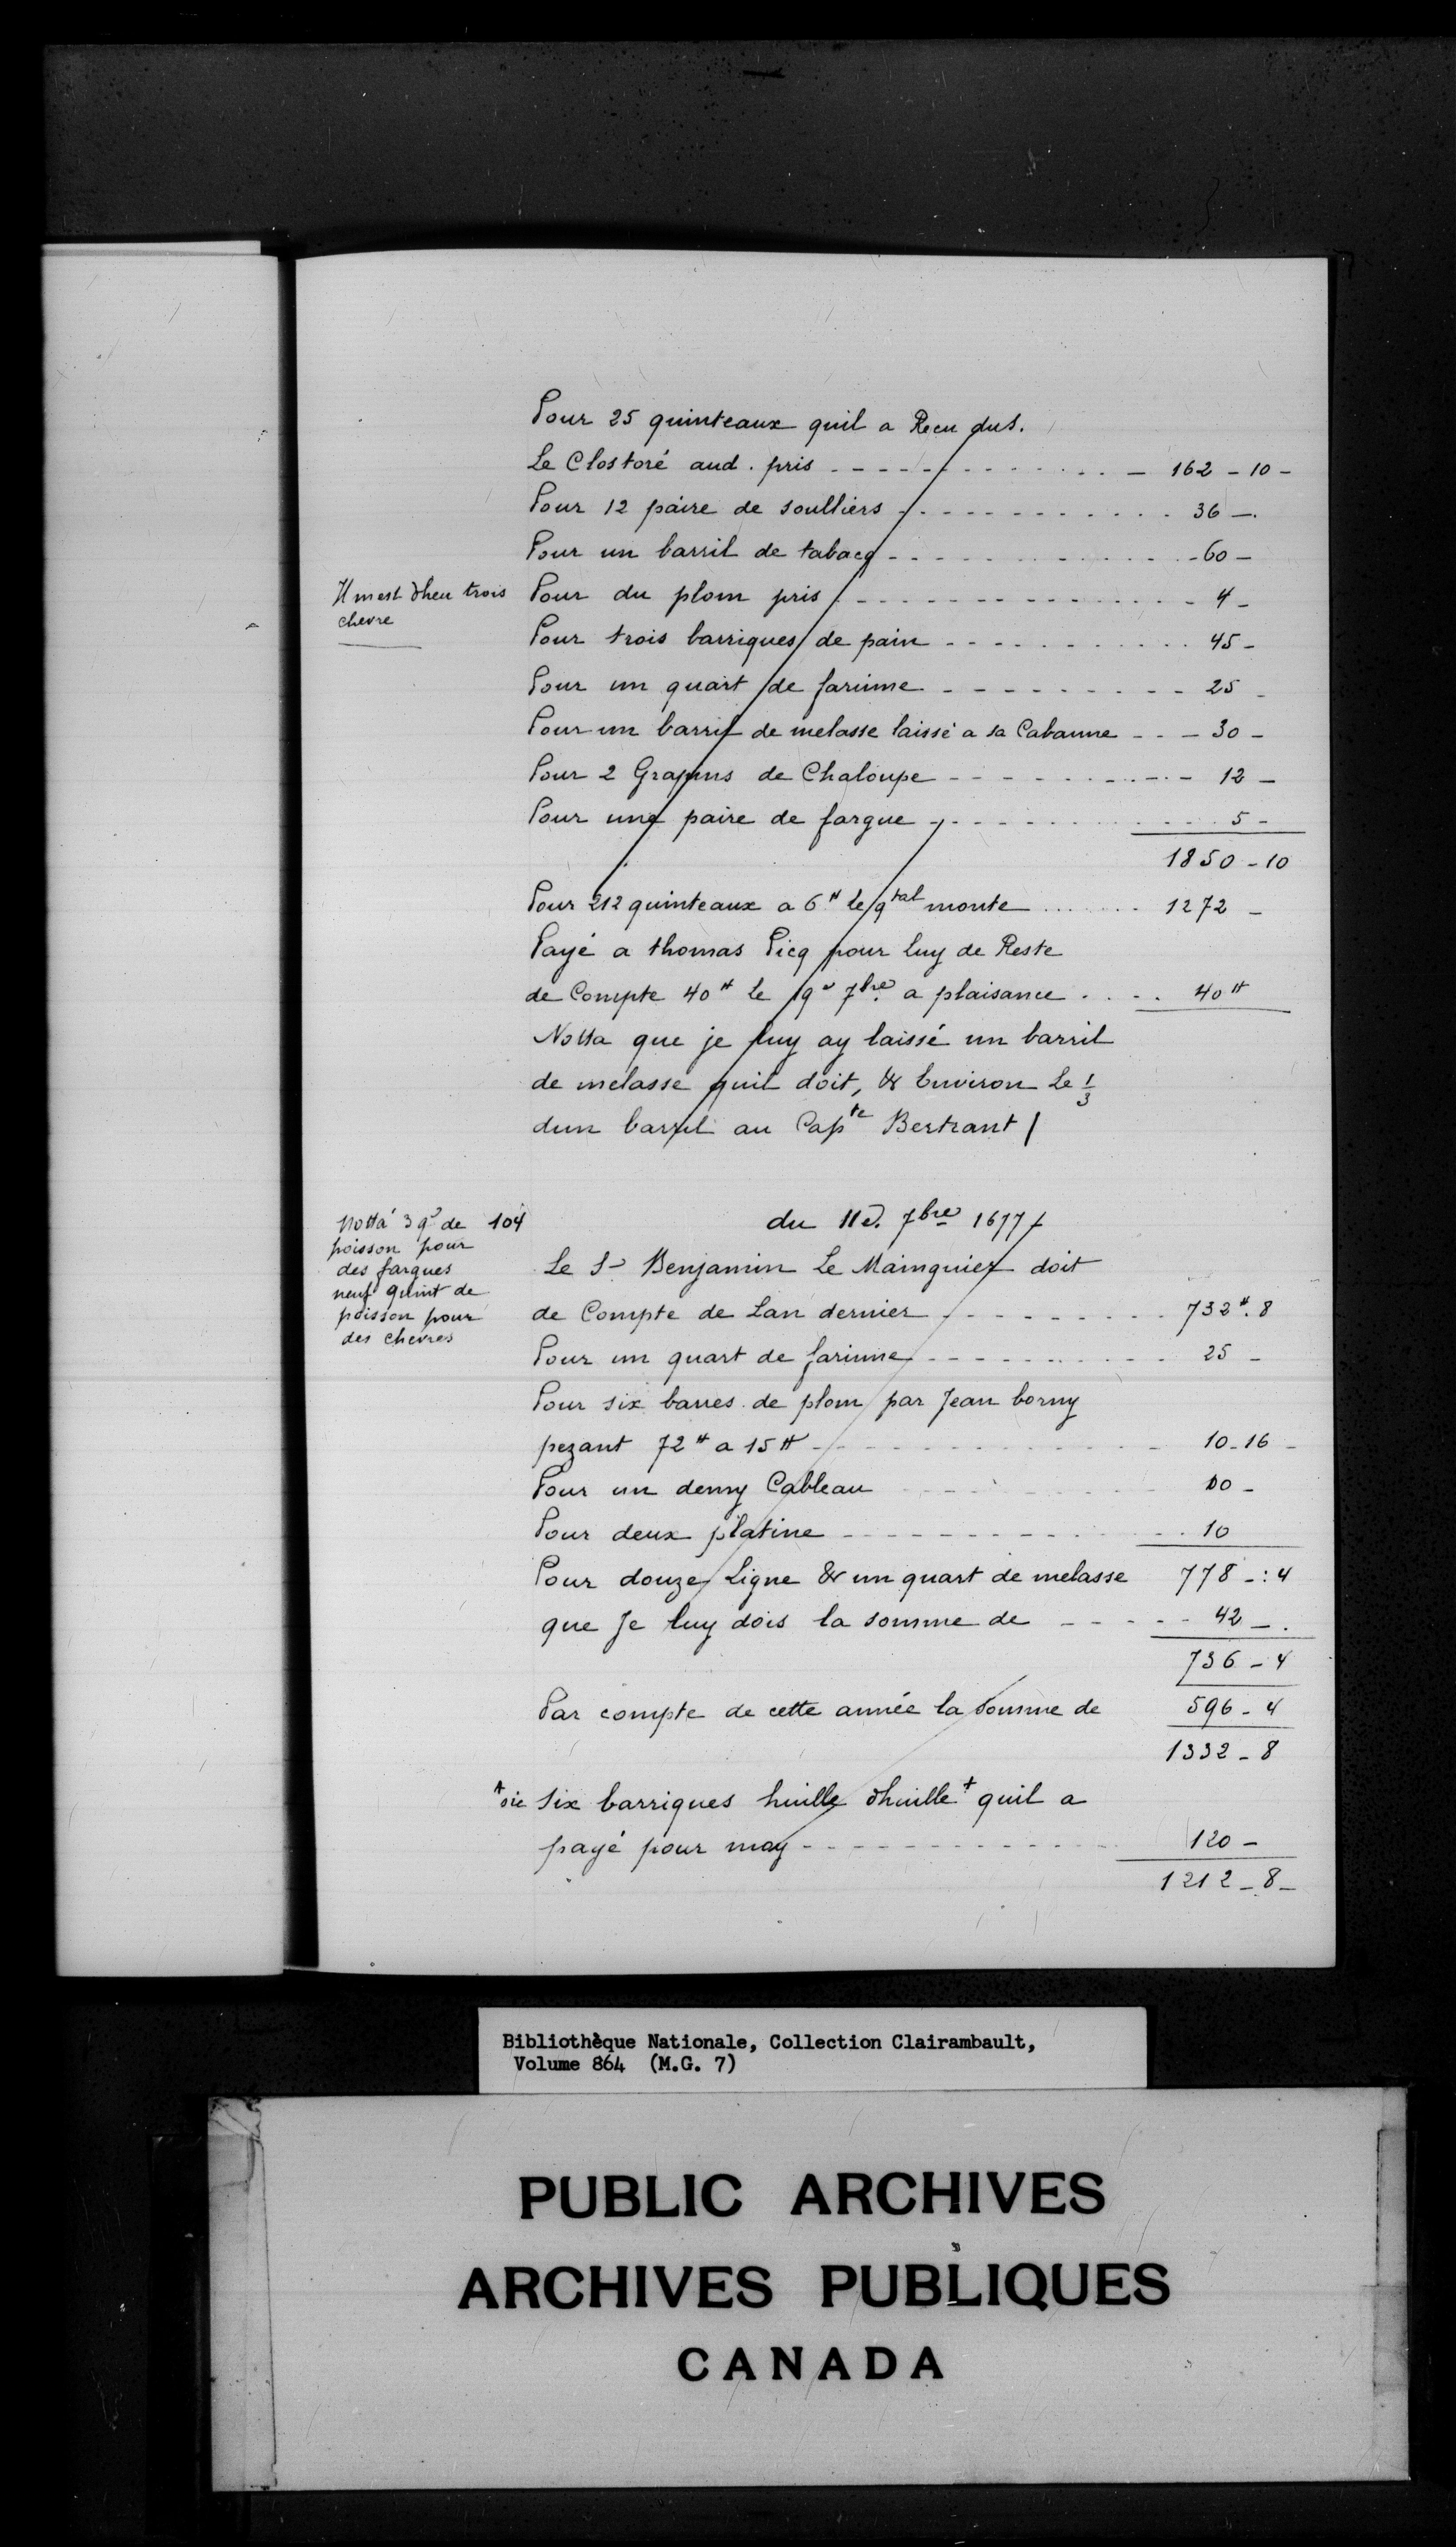 Pour 25 quinteaux quil a Recu du S.
Le Clostoré aud. pris - - - - 162 - 10 -
Pour 12 paire de soulliers - - - - 36 -.
Pour un barril de tabacq - - - - 60 -
Il mest dheu trois
chevre
Pour du plom pris - - - - 4 -
Pour trois barriques de pain - - - - 45 -
Pour un quart de farinne - - - - 25 -
Pour un barril de melasse laissé a sa Cabanne - - - 30 -
Pour 2 Grapins de Chaloupe - - - - 12 -
Pour une paire de fargue - - - - 5 -
1850 - 10
Pour 212 quinteaux a 6# le qtal monte ...... 1272 -
Payé a thomas Picq pour luy de Reste
de Compte 40# le 19e 7bre a plaisance .... 40#
Notta que je luy ay laissé un barril
de melasse quil doit, & Environ Le 1/3
dun barril au Capte Bertrant /
Notta 3 qx de 104
poisson pour
des fargues
neuf quint de
poisson pour
des chevres
du 11e. 7bre 1677 /
Le Sr Benjamin Le Mainquier doit
de Compte de Lan dernier - - - - 732#. 8
Pour un quart de farinne - - - - 25 -
Pour six barres de plom par Jean borny
pezant 72# a 15# - - - - 10 - 16 -
Pour un demy Cableau - - - - 00 -
Pour deux platine - - - - 10
Pour douze Ligne & un quart de melasse 778 - : 4
que Je luy dois la somme de - - - - 42 -.
736 - 4
Par compte de cette année la somme de 596 - 4
1332 - 8
+ sic Six barriques huille dhuille + quil a
payé pour moy - - - - 120 -
1212 - 8 -
Bibliothèque Nationale, Collection Clairambault,
Volume 864 (M.G. 7)
PUBLIC ARCHIVES
ARCHIVES PUBLIQUES
CANADA